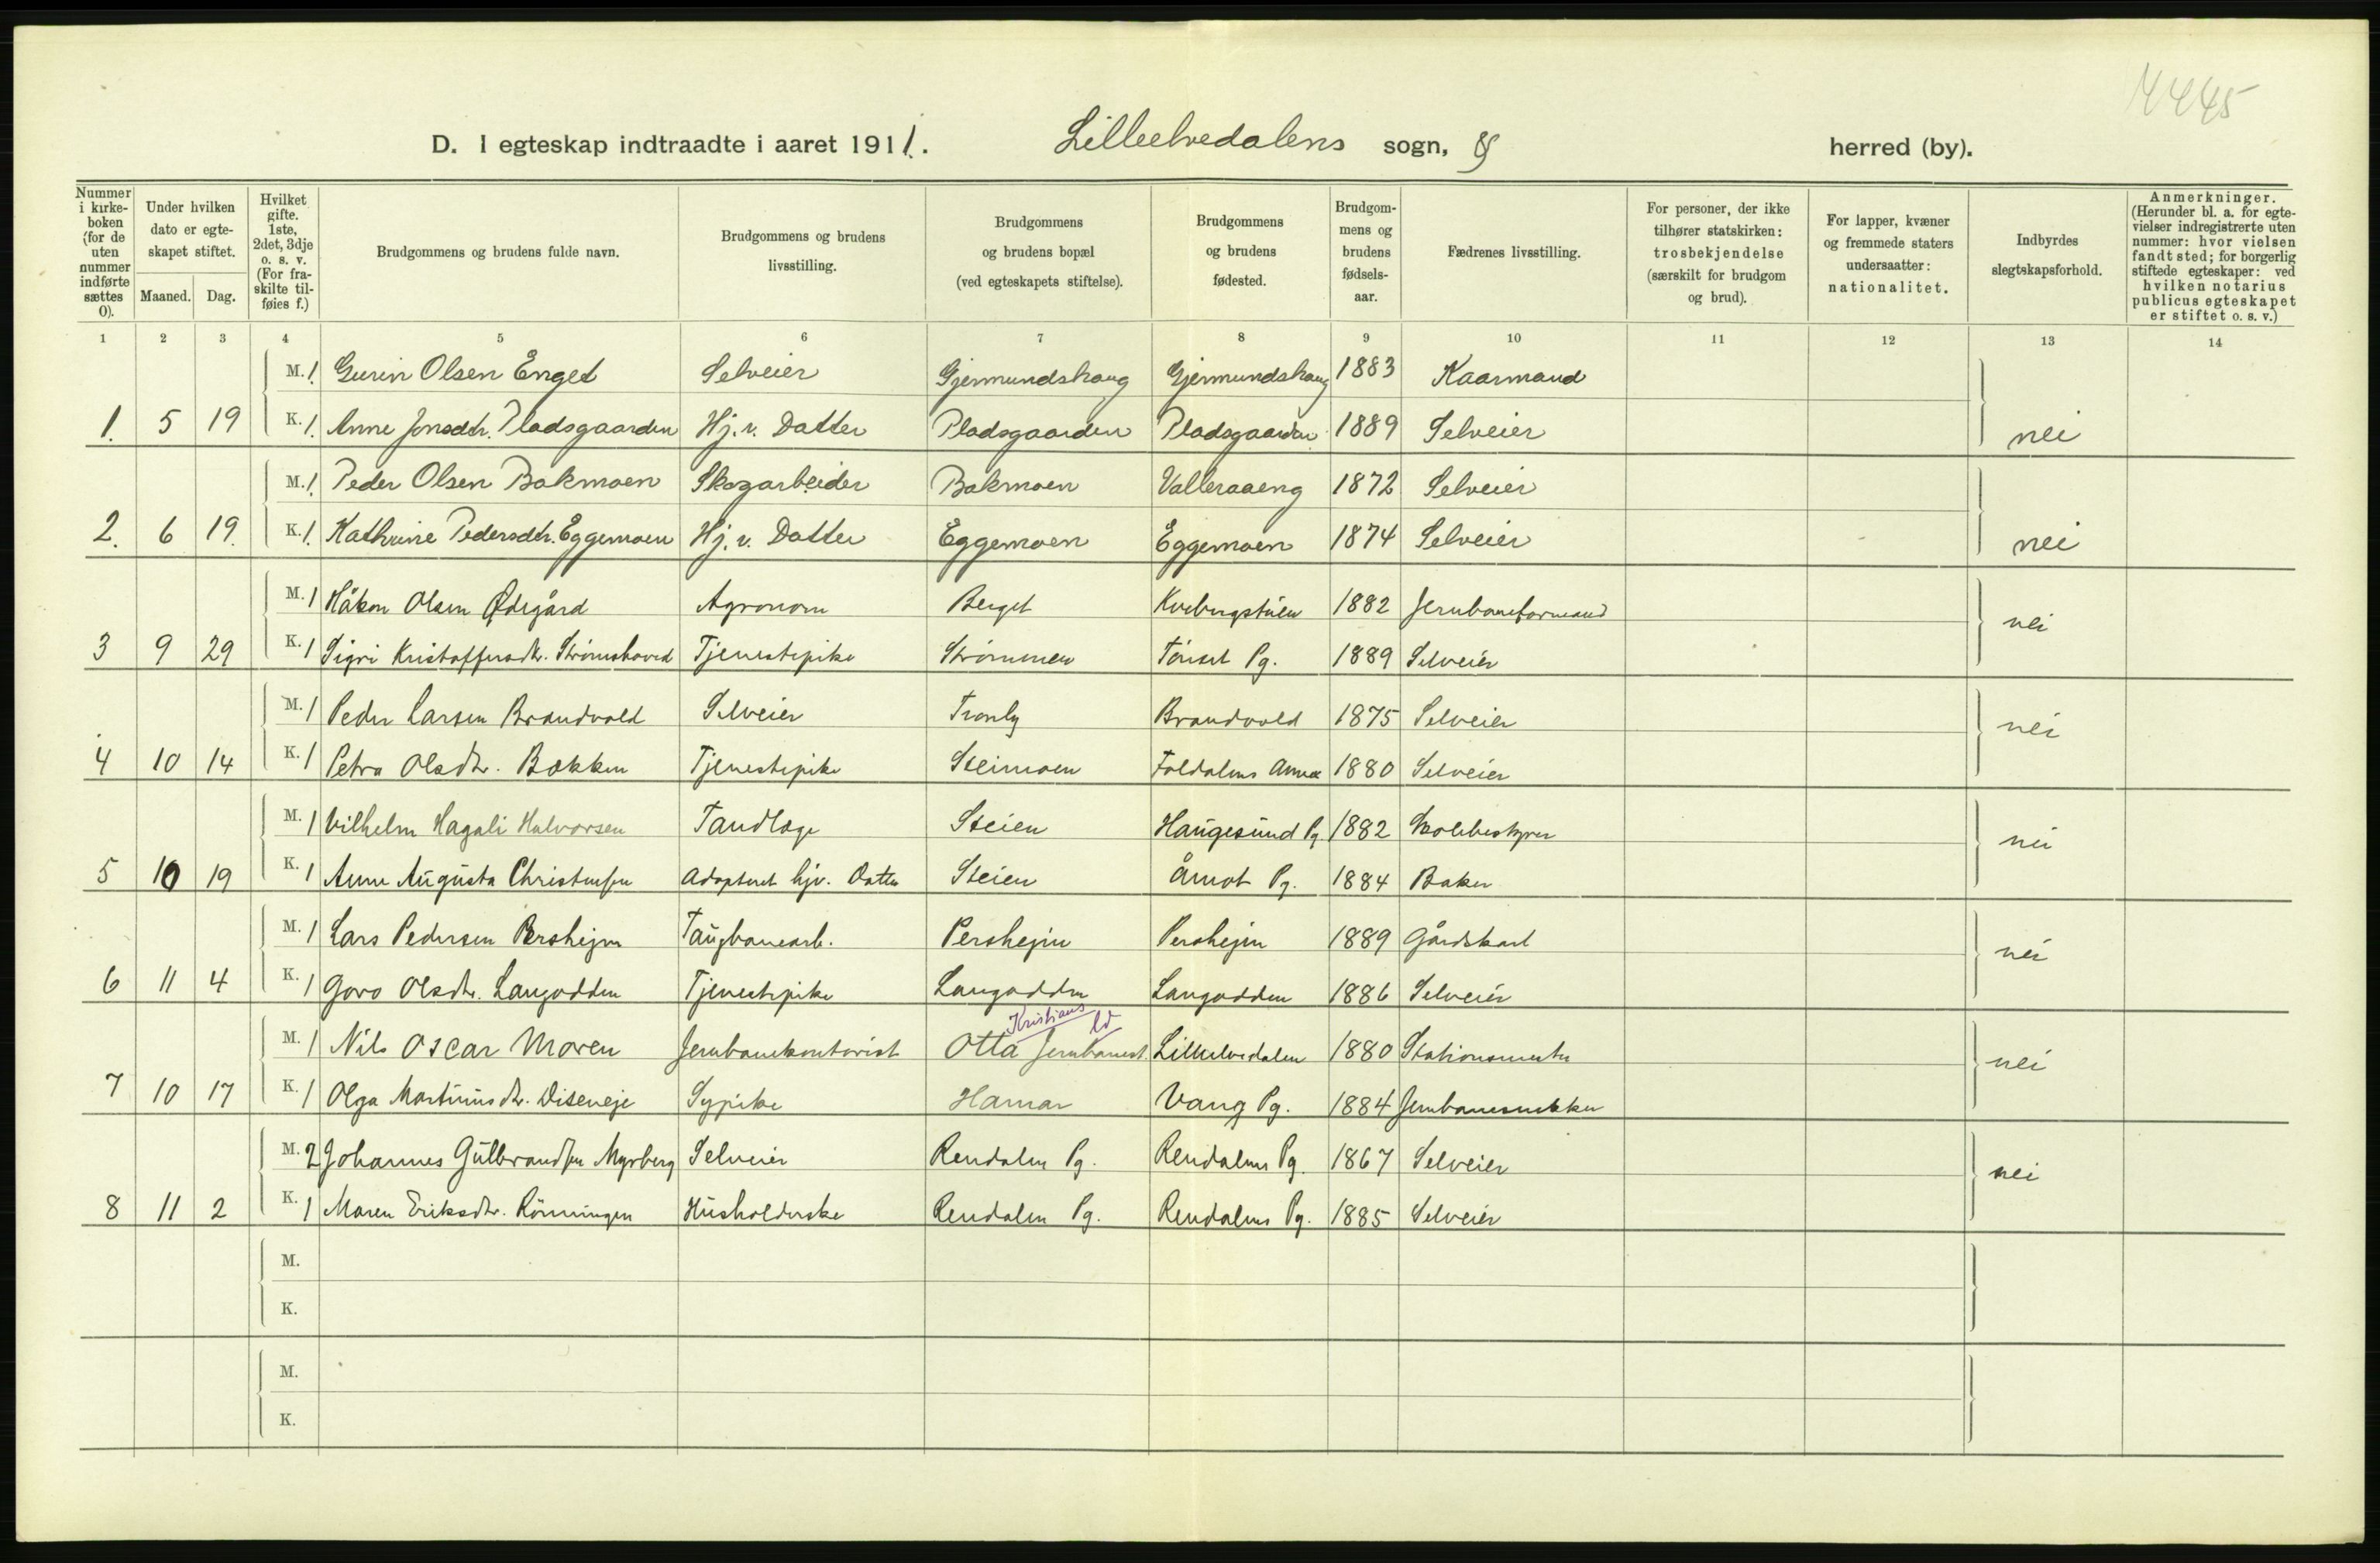 4445
D. I egteskap indtraadte i aaret 1911. Lilleelvedalens sogn, og herred (by).
Nummer i kirke-boken (for de uten nummer indførte sættes 0).
Under hvilken dato er egte-skapet stiftet.
Maaned. Dag.
Hvilket gifte. 1ste, 2det, 3dje o. s. v. (For fra-skilte til-føies f.)
Brudgommens og brudens fulde navn.
Brudgommens og brudens livsstilling.
Brudgommens og brudens bopæl (ved egteskapets stiftelse).
Brudgommens og brudens fødested.
Brudgom-mens og brudens fødsels-aar.
Fædrenes livsstilling.
For personer, der ikke tilhører statskirken: trosbekjendelse (særskilt for brudgom og brud).
For lapper, kvæner og fremmede staters undersaatter: nationalitet.
Indbyrdes slegtskapsforhold.
Anmerkninger. (Herunder bl. a. for egte-vielser indregistrerte uten nummer: hvor vielsen fandt sted; for borgerlig stiftede egteskaper: ved hvilken notarius publicus egteskapet er stiftet o. s. v.)
1 2 3 4 5 6 7 8 9 10 11 12 13 14
M. 1. Gurin Olsen Enget Selveier Gjermundshaug Gjermundshaug 1883 Kaarmand
1. 5 19 K. 1. Anne Jonsdtr. Pladsgaarden Hj. v. Datter Pladsgaarden Pladsgaarden 1889 Selveier nei
M. 1. Peder Olsen Bakmoen Skogarbeider Bakmoen Valleraaeng 1872 Selveier
2. 6 19. K. 1. Kathrine Pedersdtr. Eggemoen Hj. v. Datter Eggemoen Eggemoen 1874 Selveier nei
M. 1 Håkon Olsen Ødegård Agronom Berget 1882 Jernbaneformand
3 9 29 K. 1 Sigri Kristoffersdtr. Strømshoved Tjenestepike Strømmen Tönset Pg. 1889 Selveier nei
M. 1 Peder Larsen Brandvold Selveier Tronly Brandvold 1875 Selveier
4 10 14 K. 1 Petra Olsdtr. Bakken Tjenestepike Steimoen Foldalens Annex 1880 Selveier nei
M. 1 Vilhelm Hagali Halvorsen Tandlæge Steien Haugesund Pg 1882 Skolebestyrer
5 10 19 K. 1 Anne Augusta Christensen Adopteret hjv. Datter Steien Åmot Pg. 1884 Baker nei
M. 1 Lars Pedersen Pershejm Taugbanearb. Pershejm Pershejm 1889 Gårdskarl
6 11 4 K. 1 Goro Olsdtr. Langodden Tjenestepike Langodden Langodden 1886 Selveier nei
Kristians
M. 1 Nils Oscar Moren Jernbanekontorist Otta Jernbanest. Lilleelvedalen 1880 Stationsmester
7 10 17 K. 1 Olga Martinusdtr. Diseneje Sypike Hamar Vang Pg. 1884 Jernbanesnekker nei
M. 2 Johannes Gulbrandsen Myrberg Selveier Rendalen Pg. Rendalens Pg. 1867 Selveier
8 11 2 K. 1 Maren Eriksdtr. Rönningen Husholderske Rendalen Pg. Rendalens Pg. 1885 Selveier nei
M.
K.
M.
K.